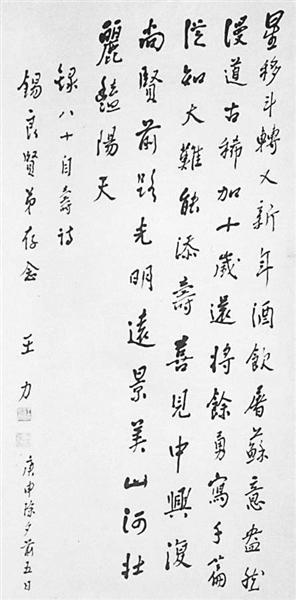 星移斗轉又新年酒飲屠蘇意盎然
漫道古稀加十歲還將餘勇寫千篇
從知大難能添壽喜見中興復
尚賢前路光明遠景美山河壯
麗豔陽天
錄八十自壽詩
錫良賢弟存念
王力
庚申除夕前五日